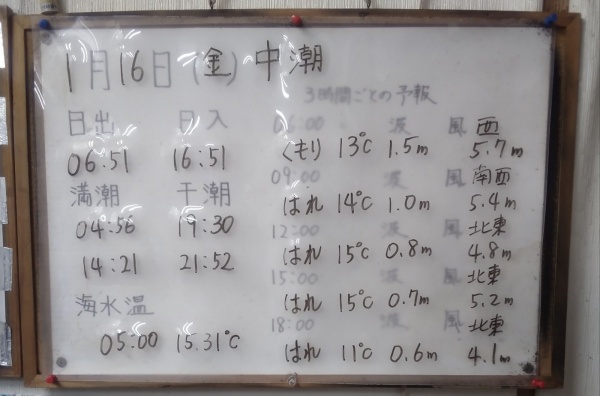 1月16日(金) 中潮
3時間ごとの予報
日出 日入
06:51 16:51
満潮 干潮
04:56 19:30
14:21 21:52
海水温
05:00 15.31℃
06:00 波 風 西
くもり 13℃ 1.5m 5.7m
09:00 波 風 南西
はれ 14℃ 1.0m 5.4m
12:00 波 風 北東
はれ 15℃ 0.8m 4.8m
15:00 波 風 北東
はれ 15℃ 0.7m 5.2m
18:00 波 風 北東
はれ 11℃ 0.6m 4.1m